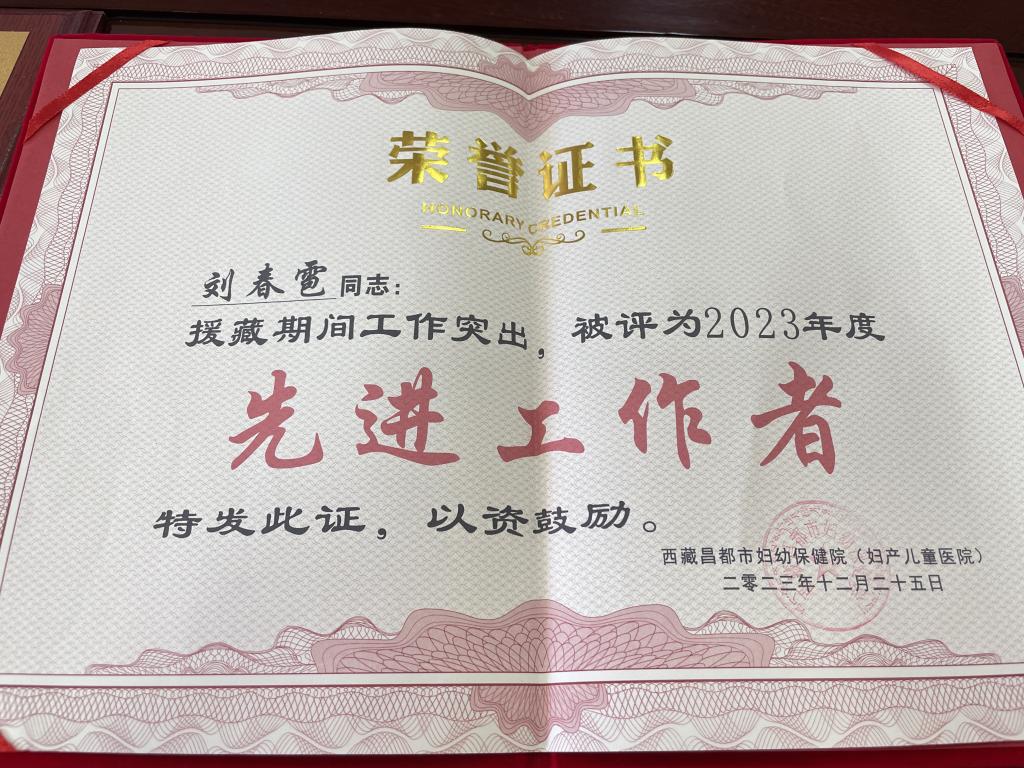 荣誉证书
HONORARY CREDENTIAL
刘春雹同志：
援藏期间工作突出，被评为2023年度
先进工作者
特发此证，以资鼓励。
西藏昌都市妇幼保健院（妇产儿童医院）
二零二三年十二月二十五日